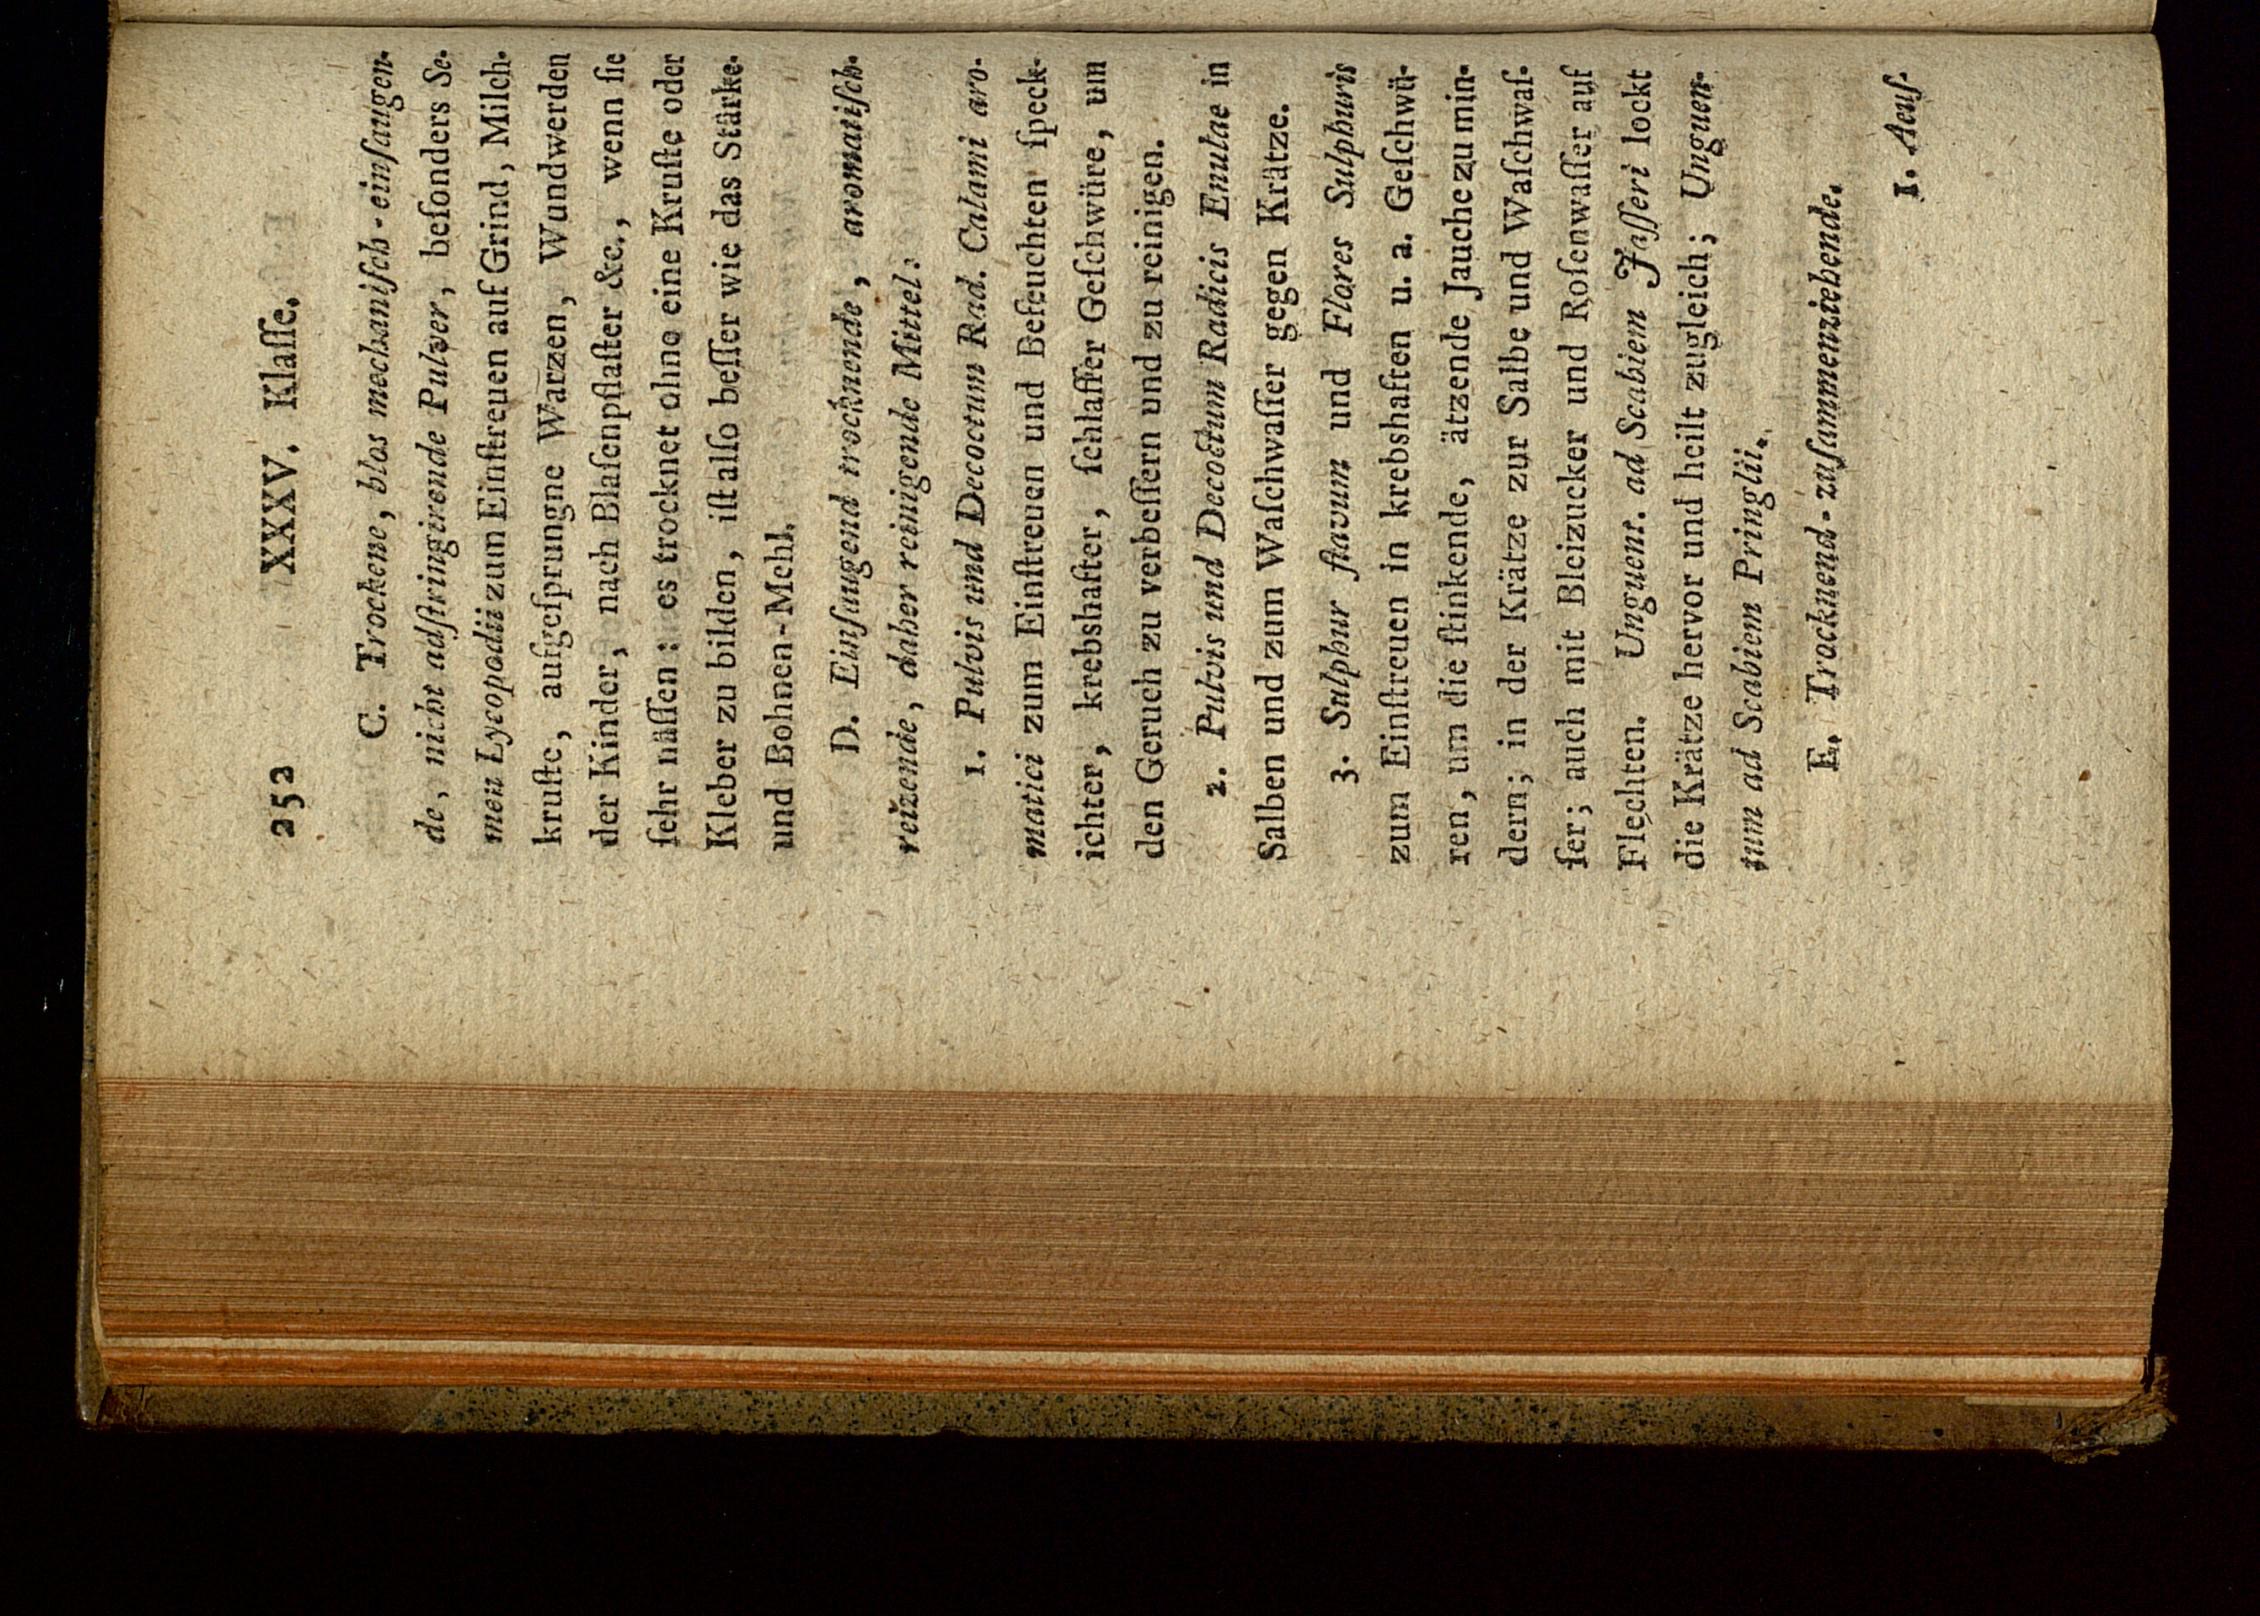 252 XXXV. Klaſſe.
C. Trockene, blos mechaniſch-einſaugen-
de, nicht adſtringirende Pulver, beſonders Se-
men Lycopodii zum Einſtreuen auf Grind, Milch-
kruſte, aufgeſprungne Warzen, Wundwerden
der Kinder, nach Blaſenpflaſter &c., wenn ſie
ſehr näſſen: es trocknet ohne eine Kruſte oder
Kleber zu bilden, iſt alſo beſſer wie das Stärke-
und Bohnen-Mehl.
D. Einſaugend trocknende, aromatiſch-
reizende, daher reinigende Mittel:
1. Pulvis und Decoctum Rad. Calami aro-
matici zum Einſtreuen und Befeuchten ſpeck-
ichter, krebshafter, ſchlaffer Geſchwüre, um
den Geruch zu verbeſſern und zu reinigen.
2. Pulvis und Decoctum Radicis Enulae in
Salben und zum Waſchwaſſer gegen Krätze.
3. Sulphur flavum und Flores Sulphuris
zum Einſtreuen in krebshaften u. a. Geſchwü-
ren, um die ſtinkende, ätzende Jauche zu min-
dern; in der Krätze zur Salbe und Waſchwaſ-
ſer; auch mit Bleizucker und Roſenwaſſer auf
Flechten. Unguent. ad Scabiem Jaſſeri lockt
die Krätze hervor und heilt zugleich; Unguen-
tum ad Scabiem Pringlii.
E. Trocknend-zuſammenziehende.
1. Aeuſ-